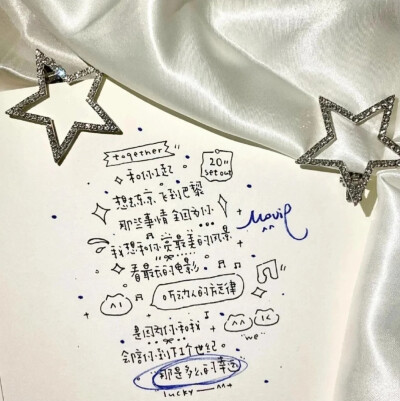 together
20"
set out
和你1起
想去东京 飞到巴黎
那些事情 全因为你
movie
我想和你赏最美的风景
看最大的电影
听动人的旋律
是因为你和我
"we"
会陪你到下1个世纪。
那是多么的幸运
lucky